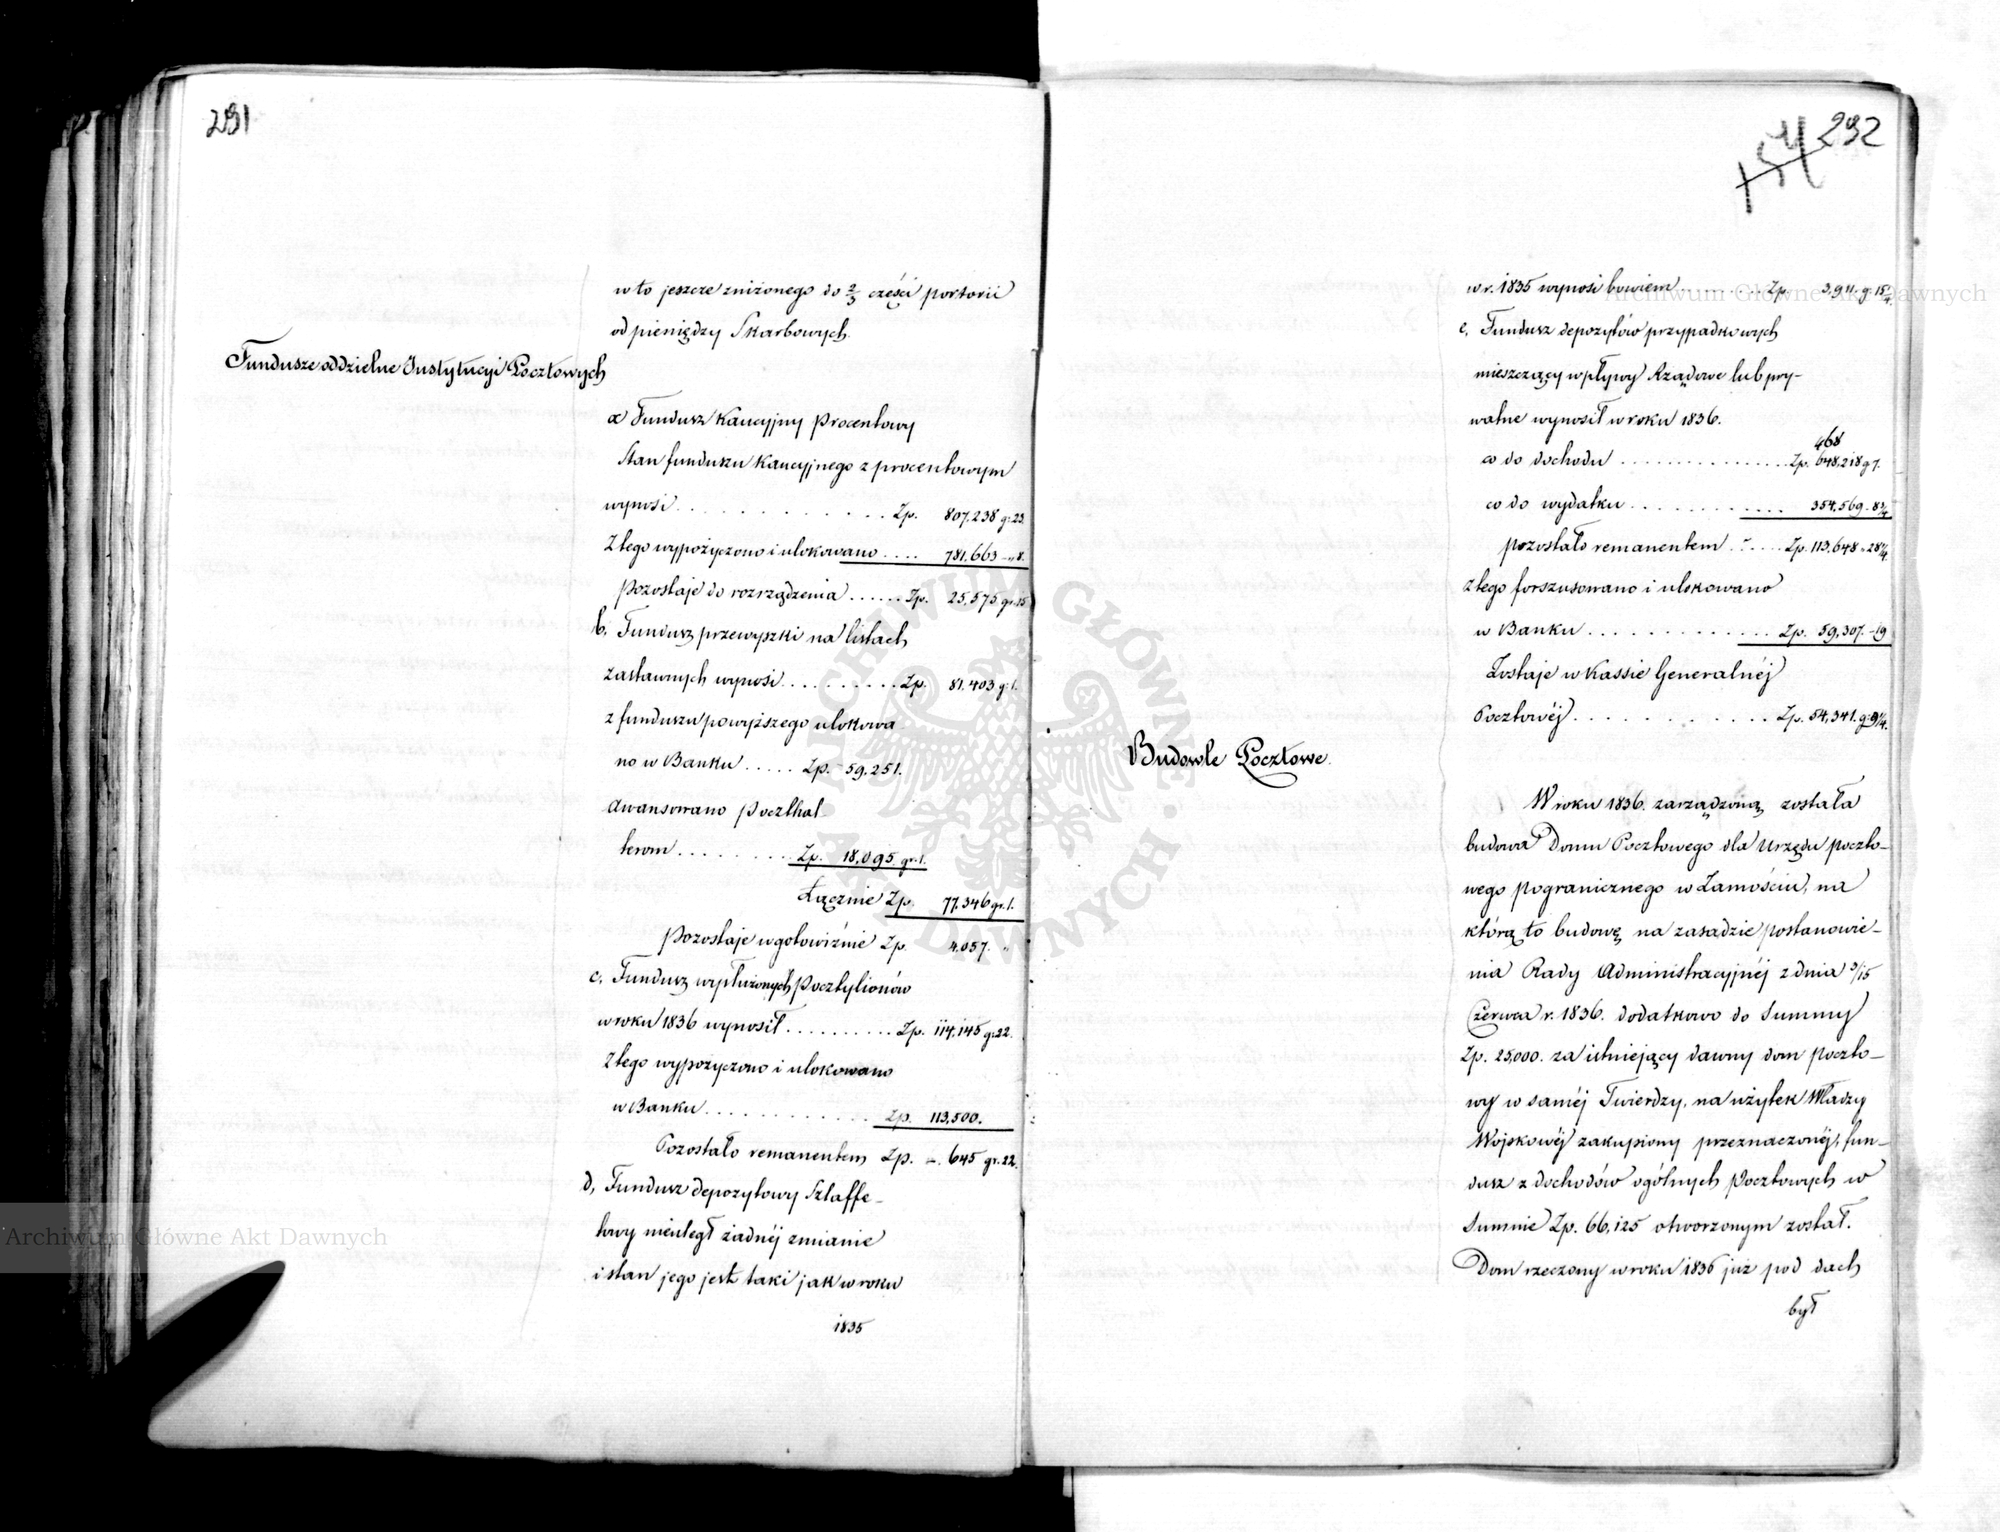 291
w to jeszcze zniżonego do 2/3 części portorii
od pieniędzy Skarbowych.
Fundusze oddzielne Instytucyi Pocztowych
a Fundusz Kaucyjny Procentowy
Stan funduszu Kaucyjnego z procentowym
wynosi . . . . . . . . . . . . . Zp. 807,238 g: 23.
Z tego wypożyczono i ulokowano . . . . 781,663 - „ 8.
Pozostaje do rozrządzenia . . . . . . Zp. 25,575 gr. 15
b, Fundusz przewyszki na listach
zastawnych wynosi . . . . . . . . . . Zp. 81,403 g: 1.
z funduszu powyższego ulokowa
no w Banku . . . . . Zp. 59,251.
awansowano Poczthal-
terom . . . . . . . . . Zp. 18,095 gr. 1.
Łącznie Zp. 77,346 gr. 1.
Pozostaje w gotowiźnie Zp. 4,057. „
c, Fundusz wysłużonych Pocztylionów
w roku 1836 wynosił . . . . . . . . . . Zp. 114,145 g: 22.
Z tego wypożyczono i ulokowano
w Banku . . . . . . . . . . . . . Zp. 113,500.
Pozostało remanentem Zp. -. 645 gr. 22.
d, Fundusz depozytowy Sztaffe-
towy nieuległ żadnéj zmianie
i stan jego jest taki jak w roku
1835
154 292
w r. 1835 wynosi bowiem . . . . . . . . . Zp. 3,911. g: 15
e, Fundusz depozytów przypadkowych
mieszczący wpływy Rządowe lub pry-
watne wynosił w roku 1836.
468
co do dochodu . . . . . . . . . . . . . . . Zp. 648,218 g 7.
co do wydatku . . . . . . . . . . . . . 354,569 - 8 3/4
pozostało remanentem . . . . . . Zp. 113,648 „ 28 1/4.
z tego forszusowano i ulokowano
w Banku . . . . . . . . . . . . . . Zp. 59,307. - 19
Zostaje w Kassie Generalnéj
Pocztowéj . . . . . . . . . . . . . Zp. 54,341. g: 9 1/4.
Budowle Pocztowe.
W roku 1836. zarządzoną została
budowa Domu Pocztowego dla Urzędu poczto-
wego pogranicznego w Zamościu, na
którą to budowę na zasadzie postanowie-
nia Rady Administracyjnéj z dnia 3/15
Czerwca r. 1836. dodatkowo do Summy
Zp. 25,000. za istniejący dawny dom poczto-
wy w saméj Twierdzy, na użytek Władzy
Wojskowéj zakupiony przeznaczonéj, fun-
dusz z dochodów ogólnych Pocztowych w
Summie Zp. 66,125 otworzonym został.
Dom rzeczony w roku 1836 już pod dach
był
Archiwum Główne Akt Dawnych
Archiwum Główne Akt Dawnych
ARCHIWUM GŁÓWNE AKT DAWNYCH